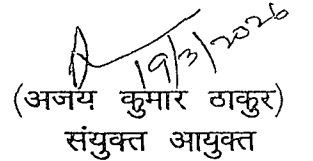 19/3/2026
(अजय कुमार ठाकुर)
संयुक्त आयुक्त